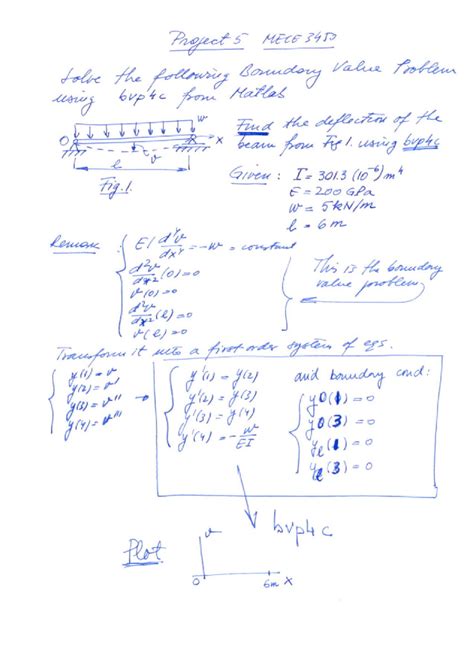 Project 5 MECE 3450
Solve the following Boundary Value Problem
using bvp4c from Matlab
w
0
x
l
v
Fig. 1.
Find the deflection of the
beam from Fig 1. using bvp4c
Given: I = 301.3 (10⁻⁶) m⁴
E = 200 GPa
w = 5 kN/m
l = 6 m
Remark:
EI d⁴v/dx⁴ = -w = constant
d²v/dx² (0) = 0
v (0) = 0
d²v/dx² (l) = 0
v (l) = 0
This is the boundary
value problem
Transform it into a first order system of eqs.
y(1) = v
y(2) = v'
y(3) = v''
y(4) = v'''
y'(1) = y(2)
y'(2) = y(3)
y'(3) = y(4)
y'(4) = -w/EI
and boundary cond:
y0(1) = 0
y0(3) = 0
yl(1) = 0
yl(3) = 0
bvp4c
Plot
v
0
6m x